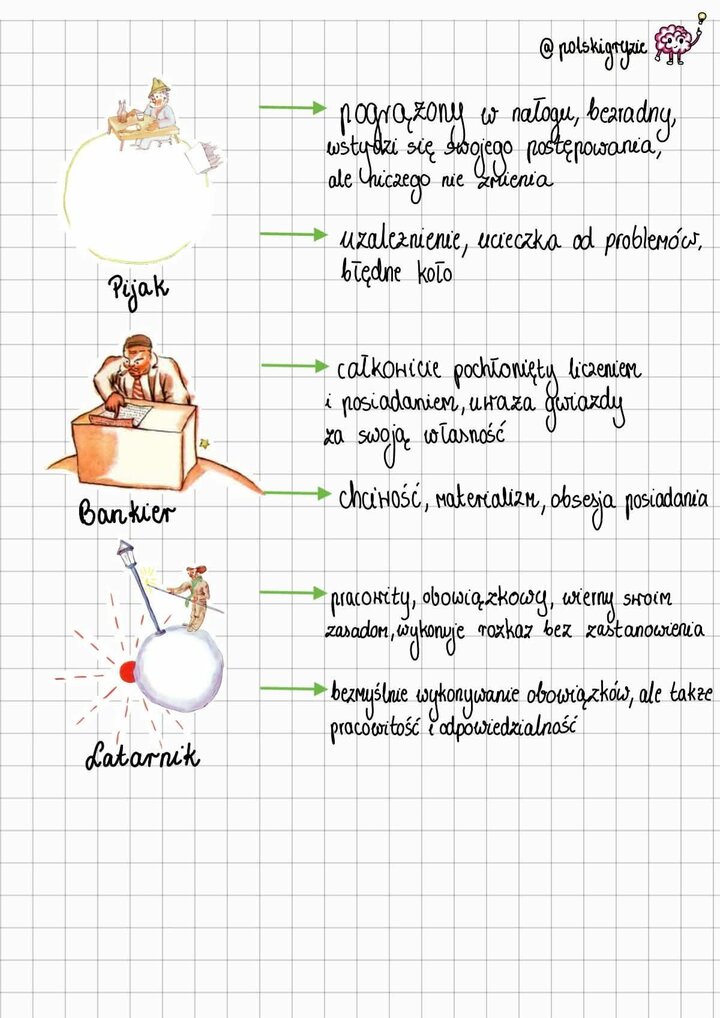 @polskigryzie
pogrążony w nałogu, bezradny,
wstydzi się swojego postępowania,
ale niczego nie zmienia
uzależnienie, ucieczka od problemów,
błędne koło
Pijak
całkowicie pochłonięty liczeniem
i posiadaniem, uważa gwiazdy
za swoją własność
chciwość, materializm, obsesja posiadania
Bankier
pracowity, obowiązkowy, wierny swoim
zasadom, wykonuje rozkaz bez zastanowienia
bezmyślnie wykonywanie obowiązków, ale także
pracowitość i odpowiedzialność
Latarnik